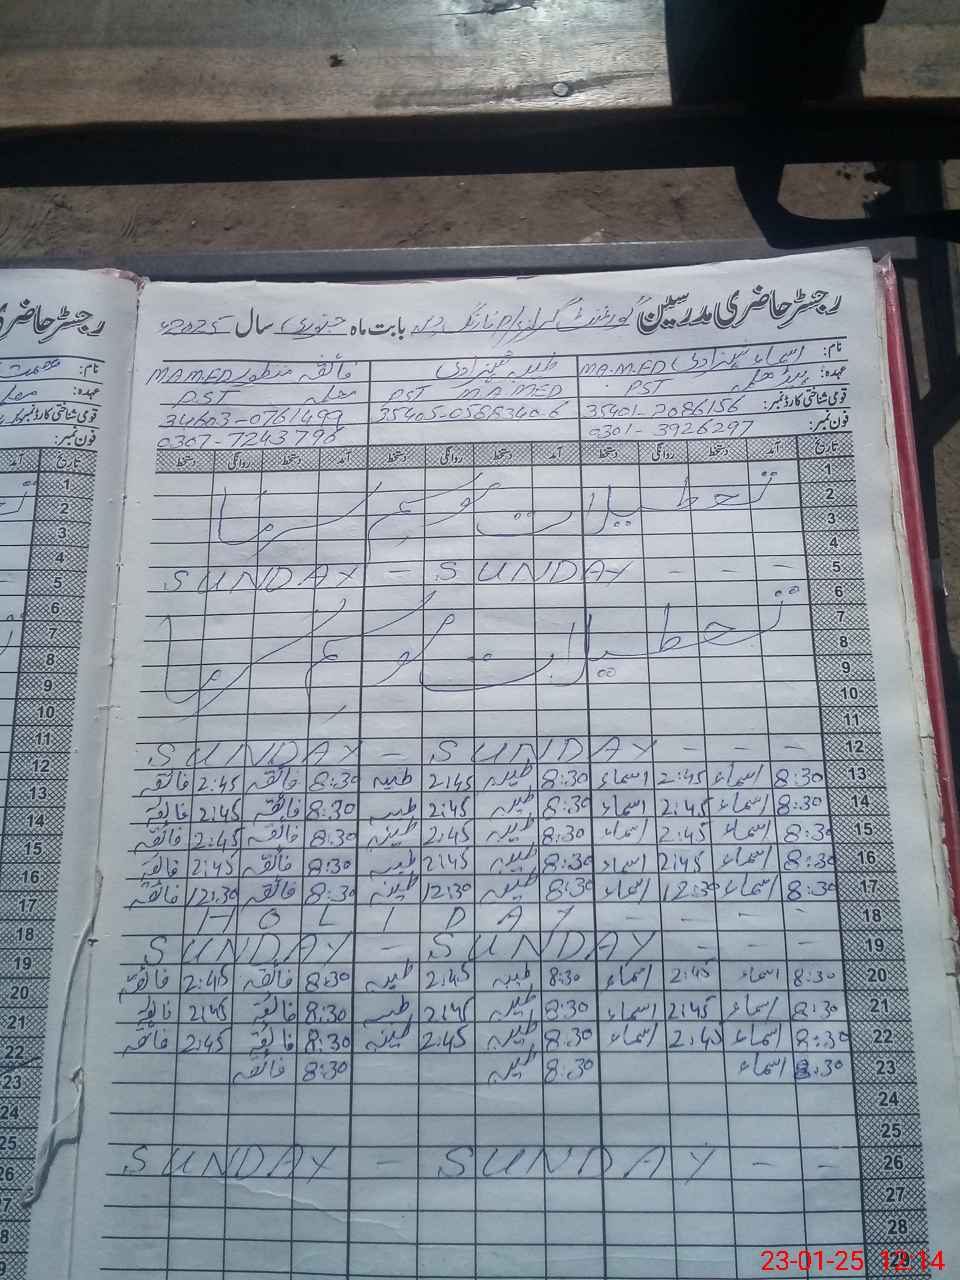 رجسٹر حاضری مدرسین گورنمنٹ گرلز پرائمری بابت ماہ جنوری سال 2025ء
نام: اسماء شہزادی MA.M.ED طیبہ شہزادی فائقہ منظور MA M.ED
عہدہ: ہیڈ معلمہ PST MA MED PST معلمہ PST
قومی شناختی کارڈ نمبر: 35401-2086156 35405-0568340-6 34603-0761499
فون نمبر: 0301-3926297 0307-7243796
تاریخ آمد دستخط روانگی دستخط آمد دستخط روانگی دستخط آمد دستخط روانگی دستخط
1
2 تعطیلات موسم سرما
3
4
5 SUNDAY - SUNDAY - - -
6
7 تعطیلات موسم سرما
8
9
10
11
12 SUNDAY - SUNDAY - - -
13 8:30 اسماء 2:45 اسماء 8:30 طیبہ 2:45 طیبہ 8:30 فائقہ 2:45 فائقہ
14 8:30 اسماء 2:45 اسماء 8:30 طیبہ 2:45 طیبہ 8:30 فائقہ 2:45 فائقہ
15 8:30 اسماء 2:45 اسماء 8:30 طیبہ 2:45 طیبہ 8:30 فائقہ 2:45 فائقہ
16 8:30 اسماء 2:45 اسماء 8:30 طیبہ 2:45 طیبہ 8:30 فائقہ 2:45 فائقہ
17 8:30 اسماء 12:30 اسماء 8:30 طیبہ 12:30 طیبہ 8:30 فائقہ 12:30 فائقہ
18 HOLIDAY - - - -
19 SUNDAY - SUNDAY - - -
20 8:30 اسماء 2:45 اسماء 8:30 طیبہ 2:45 طیبہ 8:30 فائقہ 2:45 فائقہ
21 8:30 اسماء 2:45 اسماء 8:30 طیبہ 2:45 طیبہ 8:30 فائقہ 2:45 فائقہ
22 8:30 اسماء 2:45 اسماء 8:30 طیبہ 2:45 طیبہ 8:30 فائقہ 2:45 فائقہ
23 8:30 اسماء 8:30 طیبہ 8:30 فائقہ
24
25
26 SUNDAY - SUNDAY - -
27
28
29
23-01-25 12:14